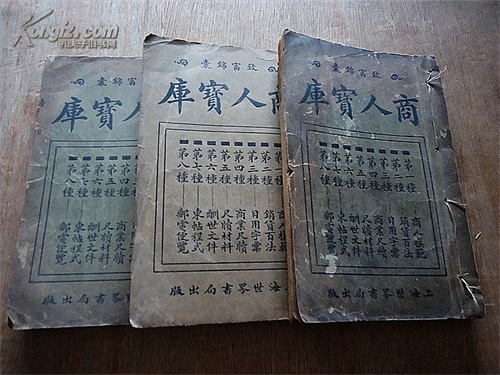 Kongfz.com
孔夫子旧书网
致富錦囊
商人寶庫
第一種 商人模範
第二種 銷貨百法
第三種 日用字彙
第四種 商業尺牘
第五種 尺牘材料
第六種 酬世文件
第七種 柬帖程式
第八種 郵電便覽
上海世界書局出版
致富錦囊
商人寶庫
第一種
第二種 銷貨百法
第三種 日用字彙
第四種 商業尺牘
第五種 尺牘材料
第六種 酬世文件
第七種 柬帖程式
第八種 郵電便覽
上海世界書局出版
富錦囊
人寶庫
第四種 商業尺牘
第五種 尺牘材料
第六種 酬世文件
第七種 柬帖程式
第八種 郵電便覽
世界書局出版